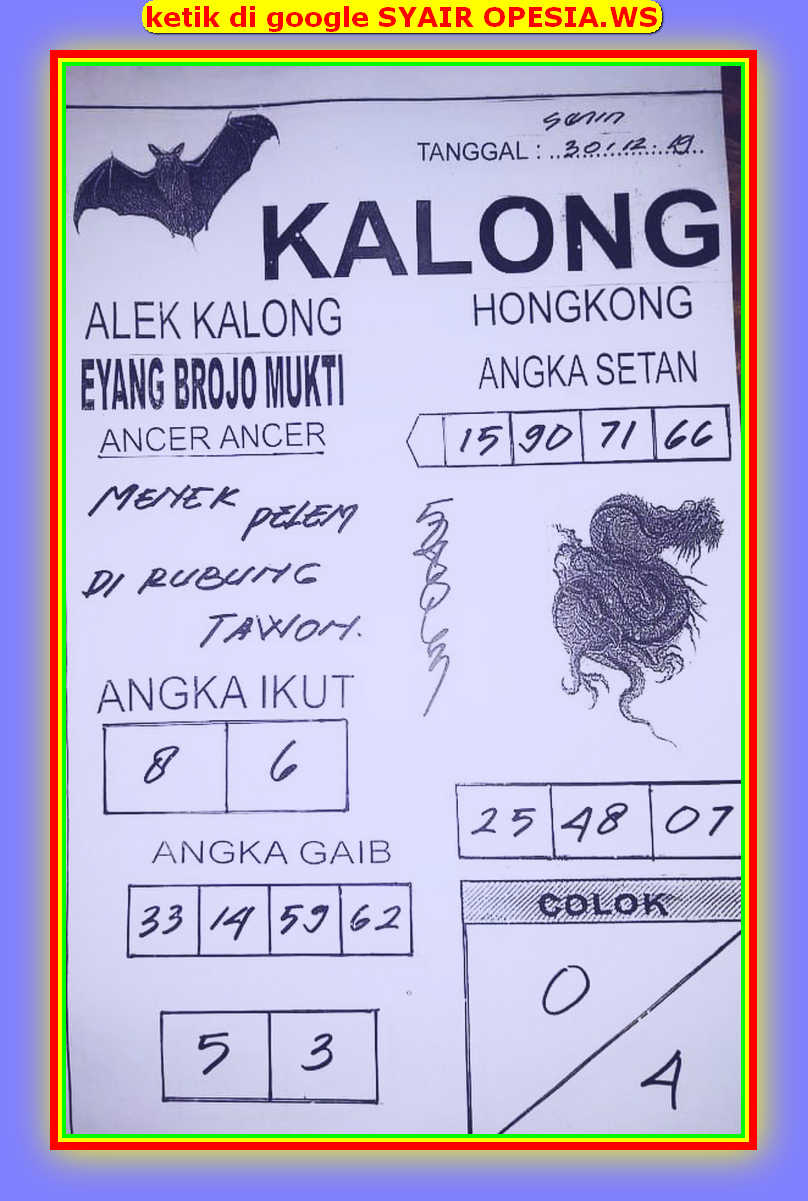 ketik di google SYAIR OPESIA.WS
senin
TANGGAL : 30/12.19
KALONG
ALEK KALONG
EYANG BROJO MUKTI
ANCER ANCER
HONGKONG
ANGKA SETAN
15 90 71 66
MENEK
PELEM
DI RUBUNG
TAWON.
ANGKA IKUT
8 6
25 48 07
ANGKA GAIB
33 14 59 62
COLOK
0
4
5 3